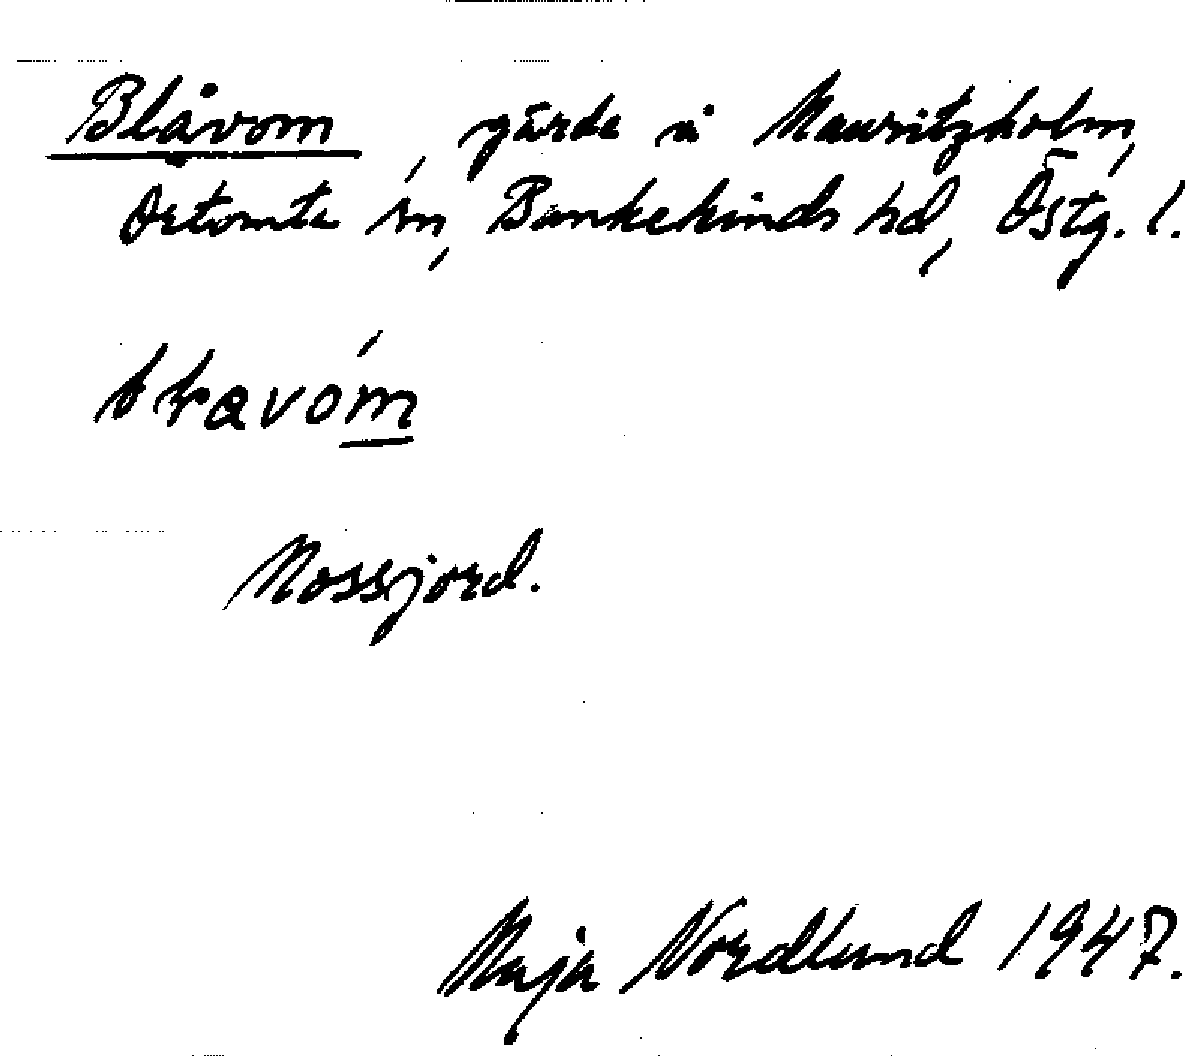 Blåvom, gärde å Mauritzholm,
Örtomta sn, Bankekinds hd, Östg. l.
Mossjord.
Maja Nordlund 1947.